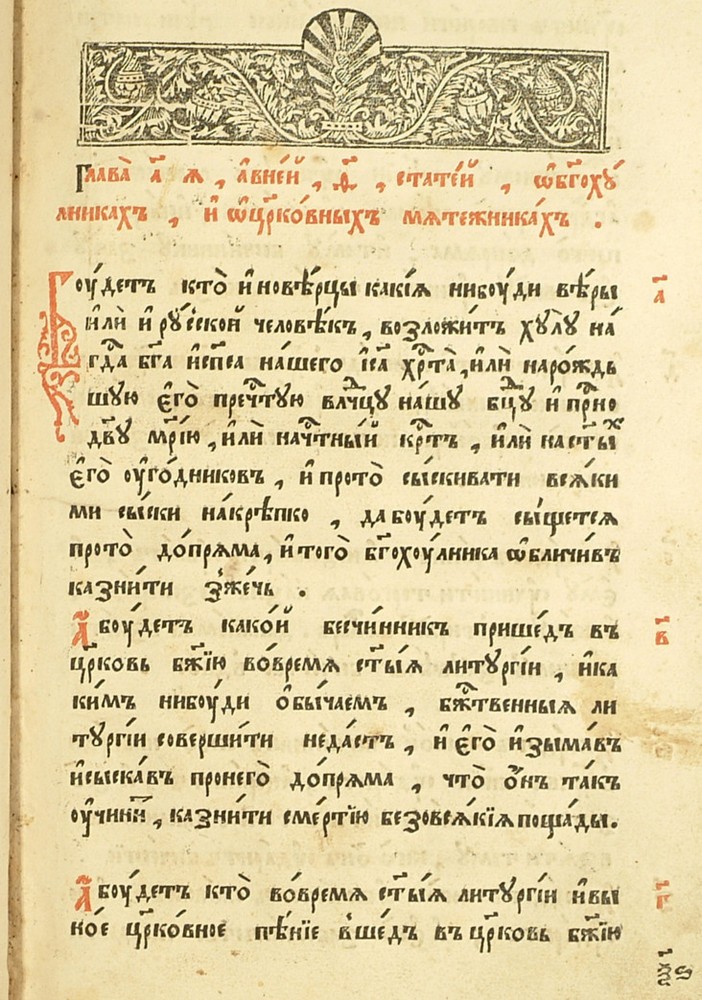 Глава̀ а҃ я , а҆вне́й , ѳ҃ , стате́й , ѡ҆бг҃оху́
лникахъ , и҆ ѡ҆цр҃ко́вныхъ мяте́жникахъ .
Боу́детъ кто̀ и҆нове́рцы какі́я нибоу́ди вѣ́ры
а҃
и҆лѝ и҆ ру́сской человѣ́къ , возложи́тъ хулу̀ на́
гд҃а бг҃а и҆ сп҃са на́шего і҆с҃а хр҃та̀ , и҆лѝ наро́ждь
шую є҆го̀ преч҃тую влч҃цу на́шу бц҃у и҆ пр҃но
дв҃у мр҃і́ю , и҆лѝ нач҃тны́й кр҃тъ , и҆лѝ наст҃ы́х
є҆го̀ оуго́дниковъ , и҆ прото̀ сы́скивати вся́ки
ми сы́ски на́крѣпко , да боу́детъ сы́щется
прото̀ до́пряма , и҆ того̀ бг҃охоу́лника ѡ҆бличи́въ
казни́ти зже́чь .
А҃ боу́детъ како́й бесчи́нникъ прише́дъ въ
в҃
цр҃ковь бж҃ію во́время ст҃ы́я литургі́и , и҆ ка
ки́мъ нибоу́ди о҆бы́чаемъ , бж҃твенныя ли
тургі́и соверши́ти неда́стъ , и҆ є҆го̀ и҆зыма́въ
и҆ сыска́въ пронего̀ до́пряма , что̀ о҆́нъ та́къ
оучини́т , казни́ти сме́ртїю безовся́кїя поща́ды .
А҃ боу́детъ кто̀ во́время ст҃ы́я литургі́и и҆ вы
г҃
но́е цр҃ко́вное пѣ́нїе вше́дъ въ цр҃ковь бж҃ію